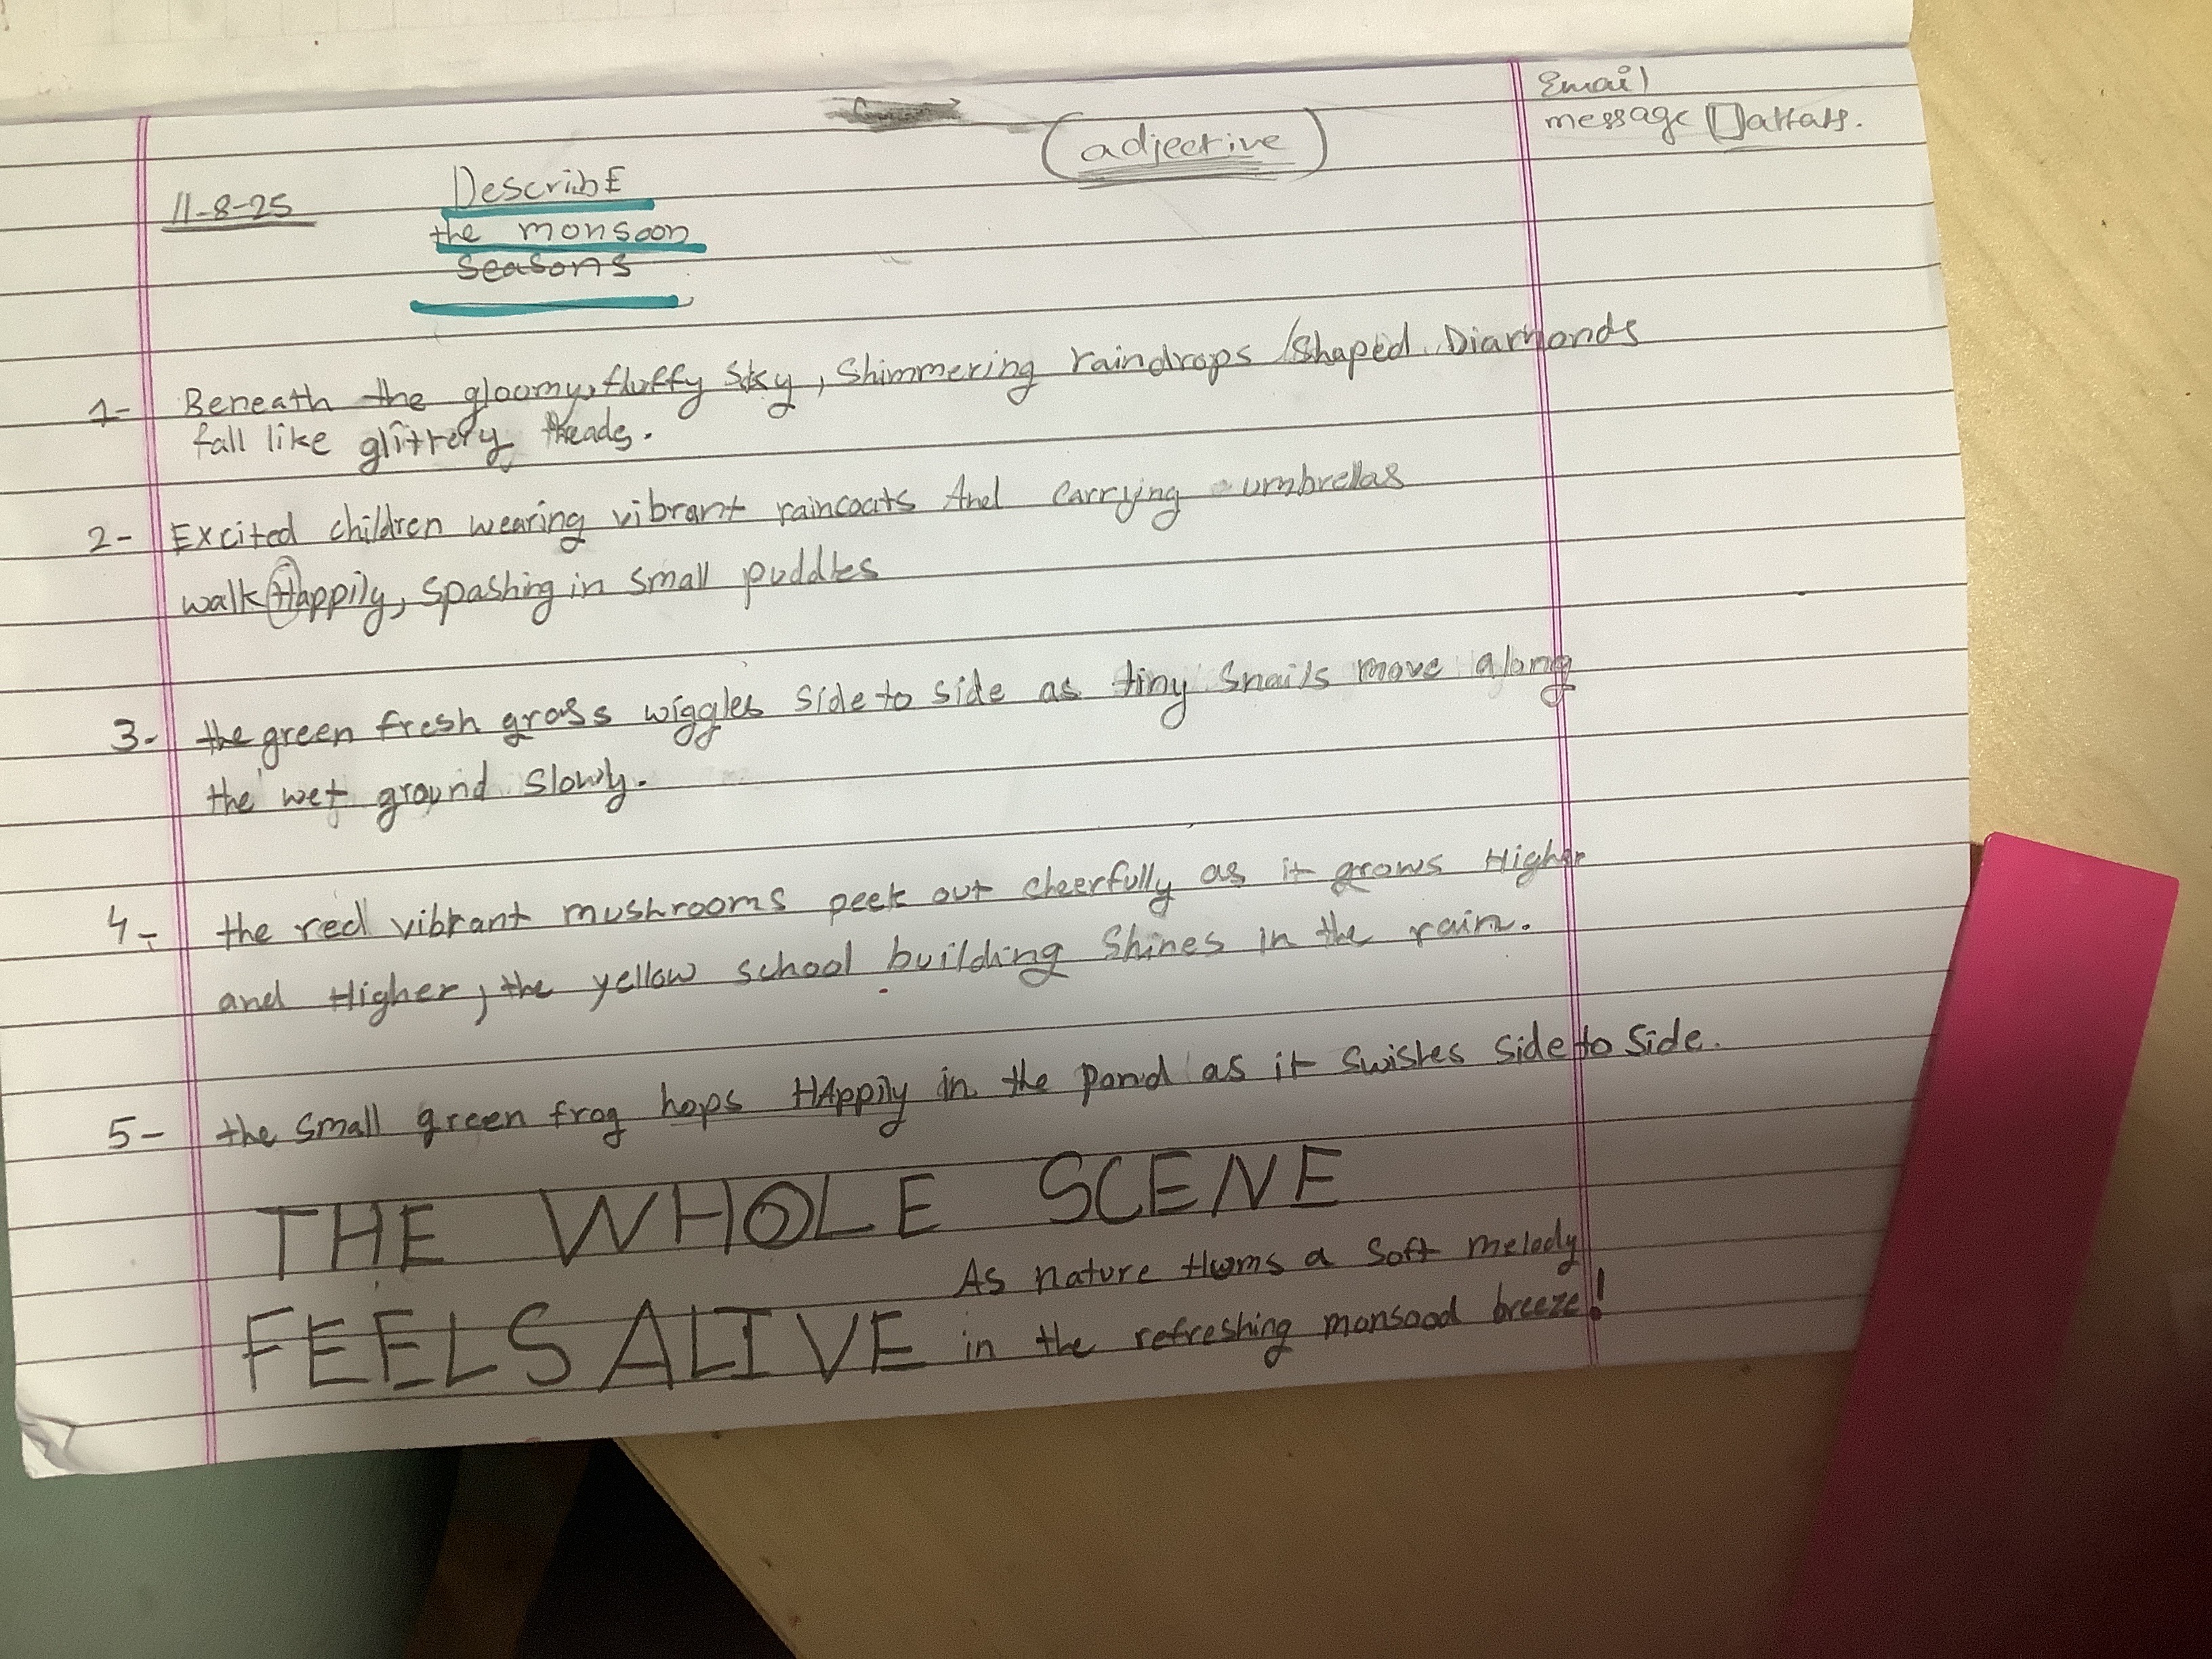 Email
message attatt.
(adjective)
11-8-25
DescribE
the monsoon
seasons
1- Beneath the gloomy, fluffy sky, shimmering raindrops /shaped Diamonds
fall like glittery theads.
2- Excited children wearing vibrant raincoats And carrying umbrellas
walk Happily, spashing in small puddles
3- the green fresh grass wiggles side to side as tiny snails move along
the wet ground slowly.
4- the red vibrant mushrooms peek out cheerfully as it grows Higher
and Higher, the yellow school building shines in the rain.
5- the small green frog hops HAppily in the pond as it swishes side to side.
THE WHOLE SCENE
FEELS ALIVE
As nature Hums a soft melody
in the refreshing monsood breeze!